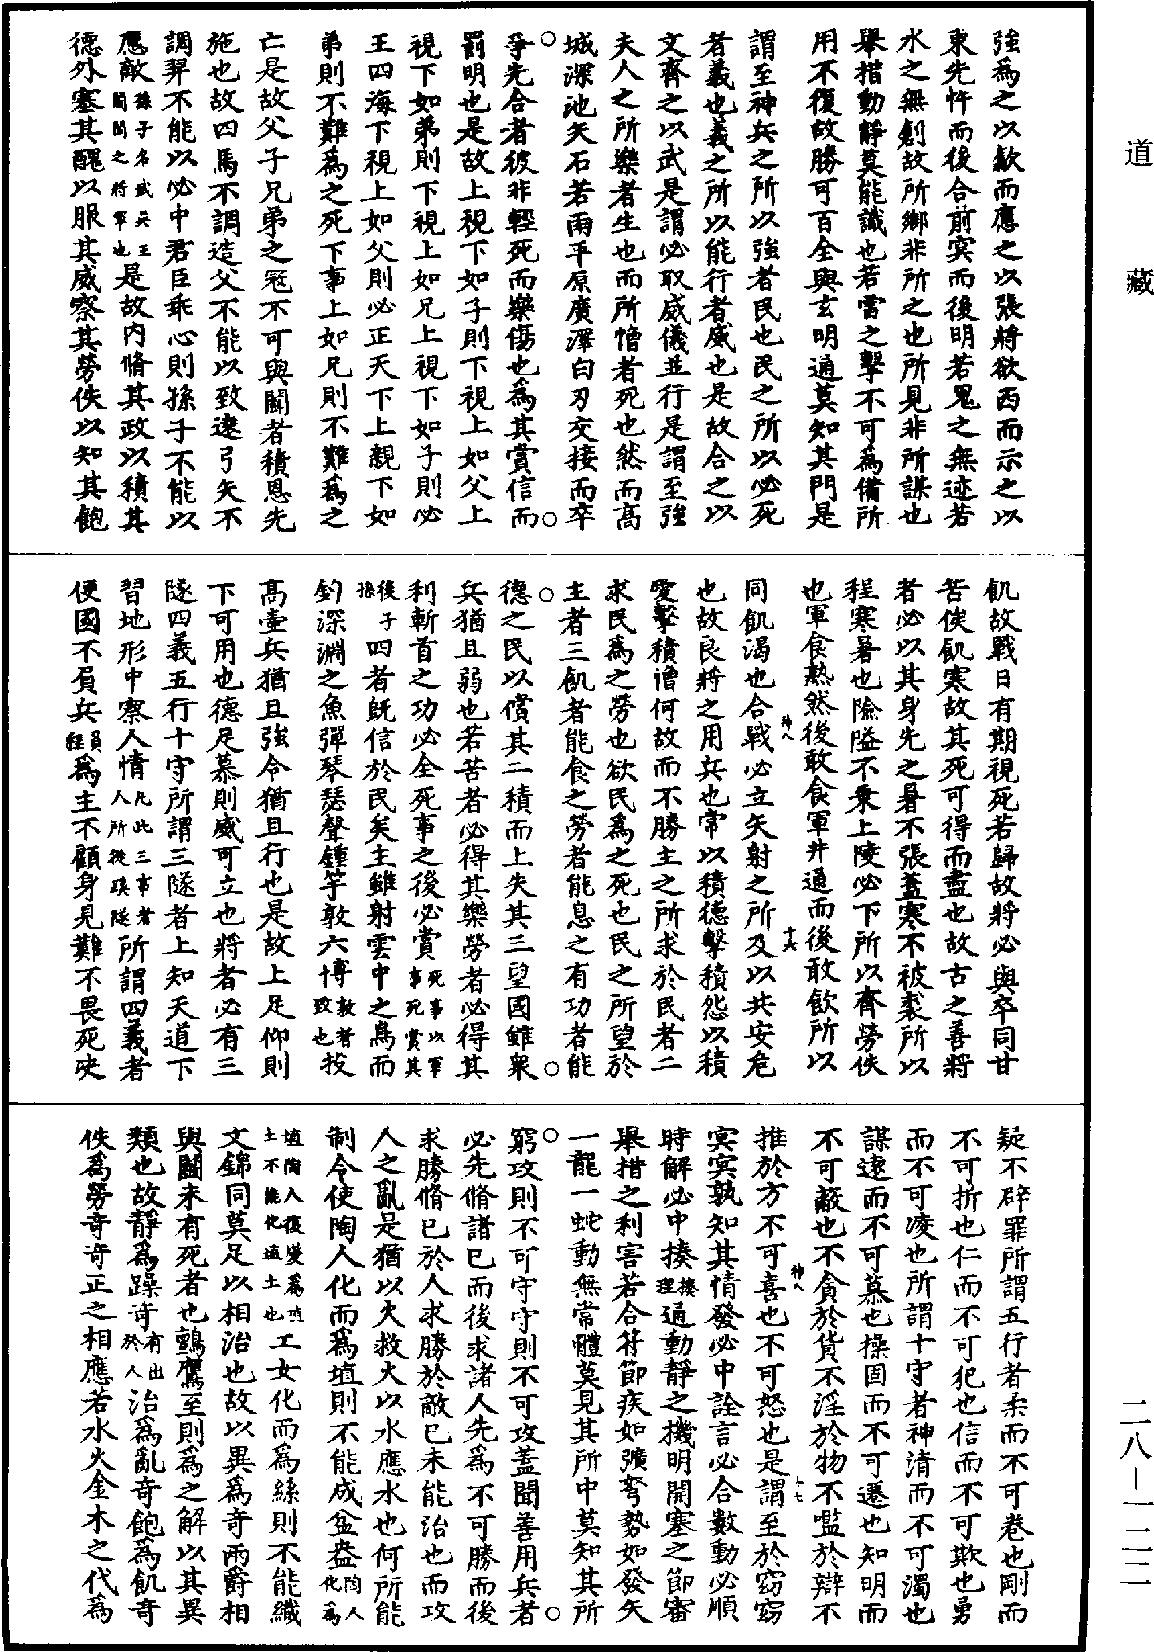 道藏
強為之以歙而應之以張將欲西而示之以
東先忤而後合前冥而後明若鬼之無迹若
水之無創故所鄉非所之也所見非所謀也
舉措動靜莫能識也若雷之擊不可為備所
用不復故勝可百全與玄明通莫知其門是
謂至神兵之所以強者民也民之所以必死
者義也義之所以能行者威也是故合之以
文齊之以武是謂必取威儀並行是謂至強
夫人之所樂者生也而所憎者死也然而高
城深池矢石若雨平原廣澤白刃交接而卒
爭先合者彼非輕死而樂傷也為其賞信而
罰明也是故上視下如子則下視上如父上
視下如弟則下視上如兄上視下如子則必
王四海下視上如父則必正天下上親下如
弟則不難為之死下事上如兄則不難為之
亡是故父子兄弟之冦不可與鬭者積恩先
施也故四馬不調造父不能以致遠弓矢不
調羿不能以必中君臣乖心則孫子不能以
應敵孫子名武吳王闔閭之將軍也是故內脩其政以積其
德外塞其醜以服其威察其勞佚以知其飽
飢故戰日有期視死若歸故將必與卒同甘
苦俟飢寒故其死可得而盡也故古之善將
者必以其身先之暑不張蓋寒不被裘所以
程寒暑也險隘不乗上陵必下所以齊勞佚
也軍食熟然後敢食軍井通而後敢飲所以
同飢渴也合戰必立矢射之所及以共安危
也故良將之用兵也常以積德擊積怨以積
愛擊積憎何故而不勝主之所求於民者二
求民為之勞也欲民為之死也民之所望於
主者三飢者能食之勞者能息之有功者能
德之民以償其二積而上失其三望國雖衆
兵猶且弱也若苦者必得其樂勞者必得其
利斬首之功必全死事之後必賞死事以軍事死賞其
後子孫四者旣信於民矣主雖射雲中之鳥而
釣深淵之魚彈琴瑟聲鍾竽敦六博敦者致也投
高壺兵猶且強令猶且行也是故上足仰則
下可用也德足慕則威可立也將者必有三
隧四義五行十守所謂三隧者上知天道下
習地形中察人情凡此三事者人所從蹊隧所謂四義者
便國不負兵員程為主不顧身見難不畏死決
疑不辟罪所謂五行者柔而不可卷也剛而
不可折也仁而不可犯也信而不可欺也勇
而不可凌也所謂十守者神清而不可濁也
謀遠而不可慕也操固而不可遷也知明而
不可蔽也不貪於貨不淫於物不𡅕於辯不
推於方不可喜也不可怒也是謂至於窈窈
冥冥孰知其情發必中詮言必合數動必順
時解必中揍揍理通動靜之機明開塞之節審
舉措之利害若合符節疾如彍弩勢如發矢
一龍一蛇動無常體莫見其所中莫知其所
窮攻則不可守守則不可攻蓋聞善用兵者
必先脩諸已而後求諸人先為不可勝而後
求勝脩已於人求勝於敵已未能治也而攻
人之亂是猶以火救火以水應水也何所能
制令使陶人化而為埴則不能成盆盎陶人化為
埴陶人復變為埴土不能化埴土也工女化而為絲則不能織
文錦同莫足以相治也故以異為奇兩爵相
與鬭未有死者也鸇鷹至則為之解以其異
類也故靜為躁奇有出於人治為亂奇飽為飢奇
佚為勞奇奇正之相應若水火金木之代為
神八
十六
神八
十七
二八－一二二